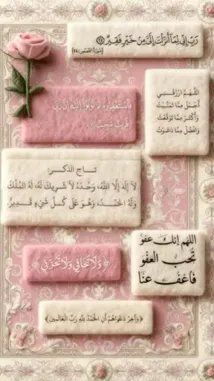 رَبِّ إِنِّي لِمَا أَنْزَلْتَ إِلَيَّ مِنْ خَيْرٍ فَقِيرٌ
اللهم ارزقني
أجمل مما تمنيت
وأكثر مما توقعت
وأفضل مما دعوت
تاج الذكر:
لَا إِلَهَ إِلَّا اللهُ، وَحْدَهُ لَا شَرِيكَ لَهُ، لَهُ الْمُلْكُ
وَلَهُ الْحَمْدُ، وَهُوَ عَلَى كُلِّ شَيْءٍ قَدِيرٌ
اللهم إنك عفو
تحب العفو
فاعف عنا
﴿وَلَا تَخَافِي وَلَا تَحْزَنِي﴾
﴿وَآخِرُ دَعْوَاهُمْ أَنِ الْحَمْدُ لِلَّهِ رَبِّ الْعَالَمِينَ﴾